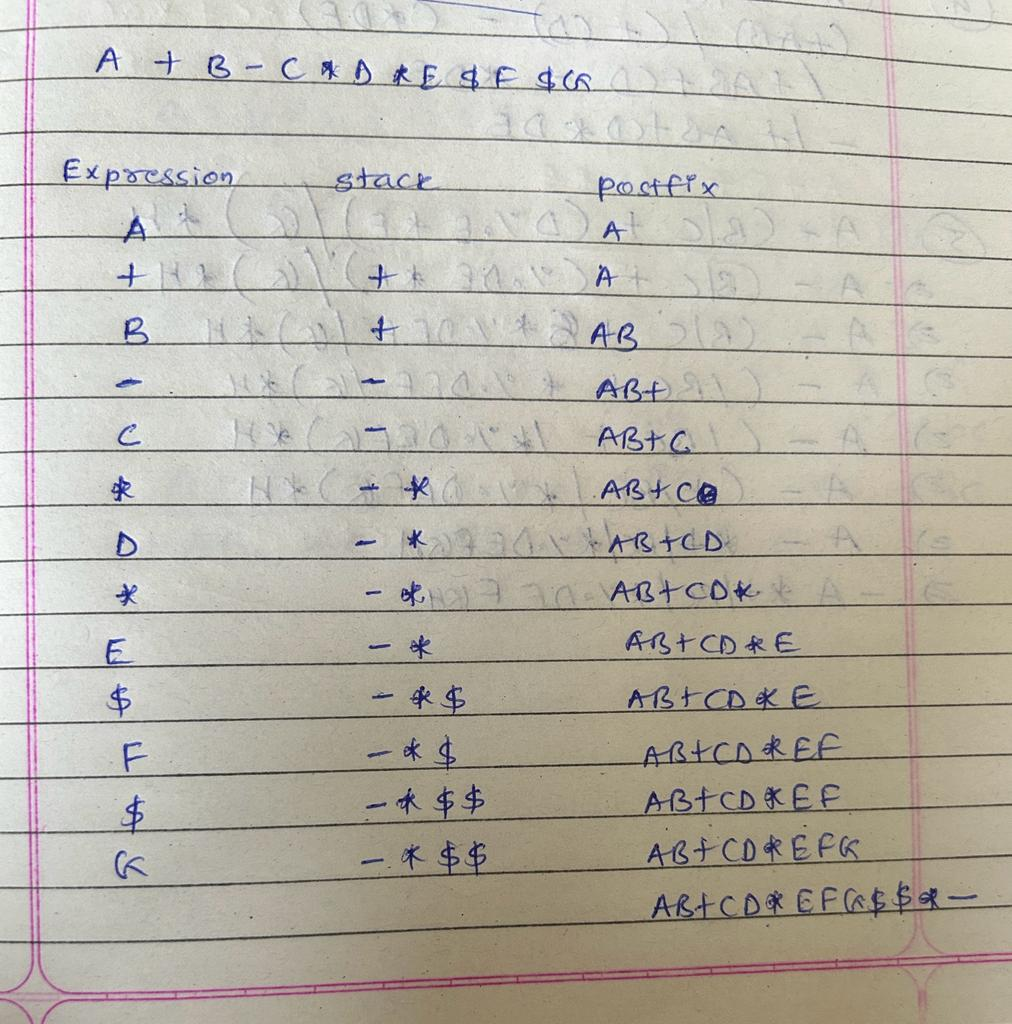 A + B - C * D * E $ F $ G
Expression stack postfix
A A
+ + A
B + AB
- - AB+
C - AB+C
* - * AB+C
D - * AB+CD
* - * AB+CD*
E - * AB+CD*E
$ - * $ AB+CD*E
F - * $ AB+CD*EF
$ - * $$ AB+CD*EF
G - * $$ AB+CD*EFG
AB+CD*EFG$$*-